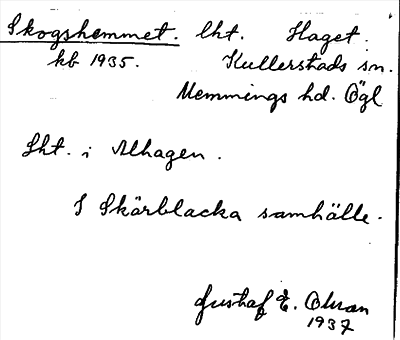 Skogshemmet. lht. Haget.
kb 1935. Kullerstads sn.
Memmings hd. Ögl
Lht. i Alhagen.
I Skärblacka samhälle.
Gustaf E.
1937